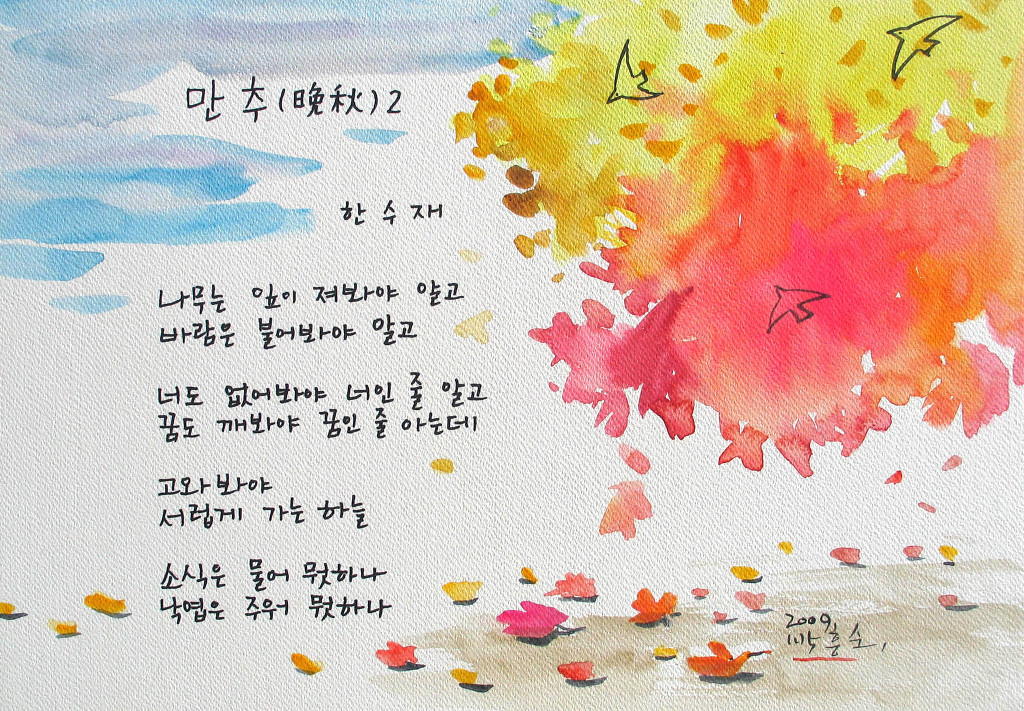 만 추 (晩秋) 2
한 수 재
나무는 잎이 져봐야 알고
바람은 불어봐야 알고
너도 없어봐야 너인 줄 알고
꿈도 깨봐야 꿈인 줄 아는데
고와봐야
서럽게 가는 하늘
소식은 물어 뭣하나
낙엽은 주워 뭣하나
2009